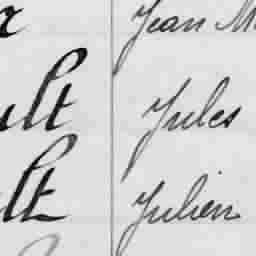 r Jean M
ult Jules
lt Julien